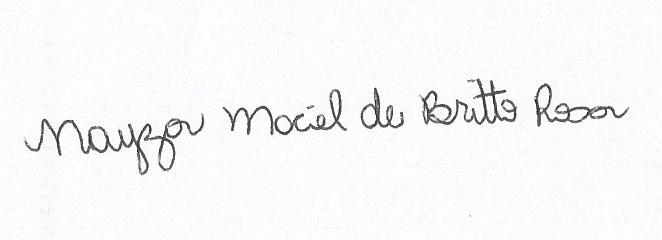 Mayza Maciel de Britto Rosa